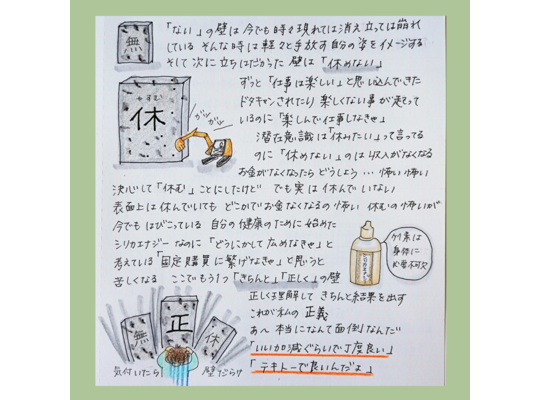 無
「ない」の壁は今でも時々現れては消え立っては崩れ
している そんな時は軽々と手放す自分の姿をイメージする
そして次に立ちはだかった壁は「休めない」
やすむ
休
ガガガ
ずっと「仕事は楽しい」と思い込んできた
ドタキャンされたり楽しくない事が続いて
いるのに「楽しんで仕事しなきゃ」
潜在意識は「休みたい」って言ってる
のに「休めない」のは収入がなくなる
お金がなくなったらどうしよう…怖い怖い
決心して「休む」ことにしたけど でも実は休んでいない
表面上は休んでいても どこかでお金なくなるの怖い 休むの怖いが
今でもはびこっている 自分の健康のために始めた
シリカエナジーなのに「どうにかして広めなきゃ」と
考えている「固定購買に繋げなきゃ」と思うと
苦しくなる ここでもう1つ「きちんと」「正しく」の壁
ケイ素は
身体に
必要不可欠
正しく理解して きちんと結果を出す
これが私の正義
あ〜本当になんて面倒なんだ
「いい加減ぐらいで丁度良い」
「テキトーで良いんだよ」
無
正
休
気付いたら 壁だらけ